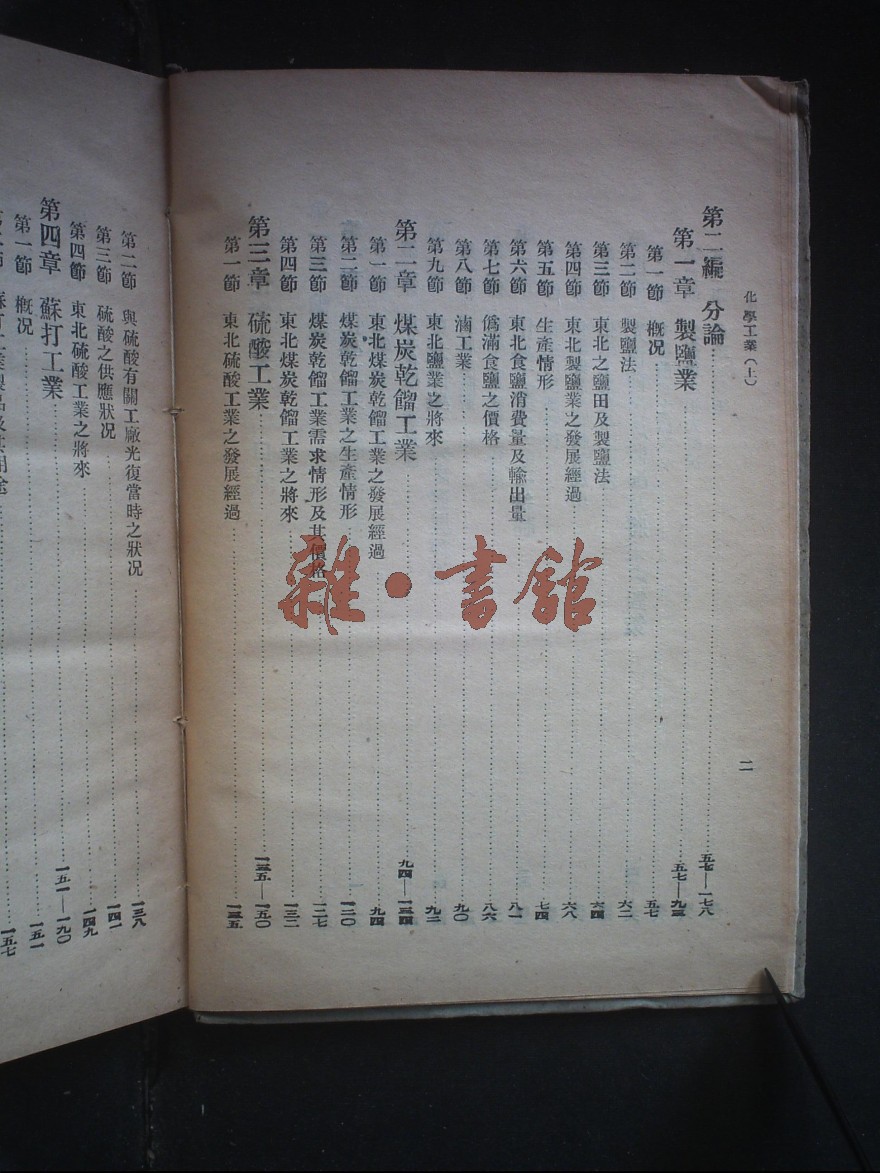 化學工業（上）
二
第二編 分論……五七—一七八
第一章 製鹽業……五七—九三
第一節 概況……五七
第二節 製鹽法……六二
第三節 東北之鹽田及製鹽法……六四
第四節 東北製鹽業之發展經過……六八
第五節 生產情形……七四
第六節 東北食鹽消費量及輸出量……八一
第七節 僞滿食鹽之價格……八六
第八節 滷工業……九〇
第九節 東北鹽業之將來……九二
第二章 煤炭乾餾工業……九四—一三四
第一節 東北煤炭乾餾工業之發展經過……九四
第二節 煤炭乾餾工業之生產情形……一二〇
第三節 煤炭乾餾工業需求情形及其價格……一二七
第四節 東北煤炭乾餾工業之將來……一三二
第三章 硫酸工業……一三五—一五〇
第一節 東北硫酸工業之發展經過……一三五
第二節 與硫酸有關工廠光復當時之狀況……一三八
第三節 硫酸之供應狀況……一四一
第四節 東北硫酸工業之將來……一四九
第四章 蘇打工業……一五一—一九〇
第一節 概況……一五一
一五七
雜·書館